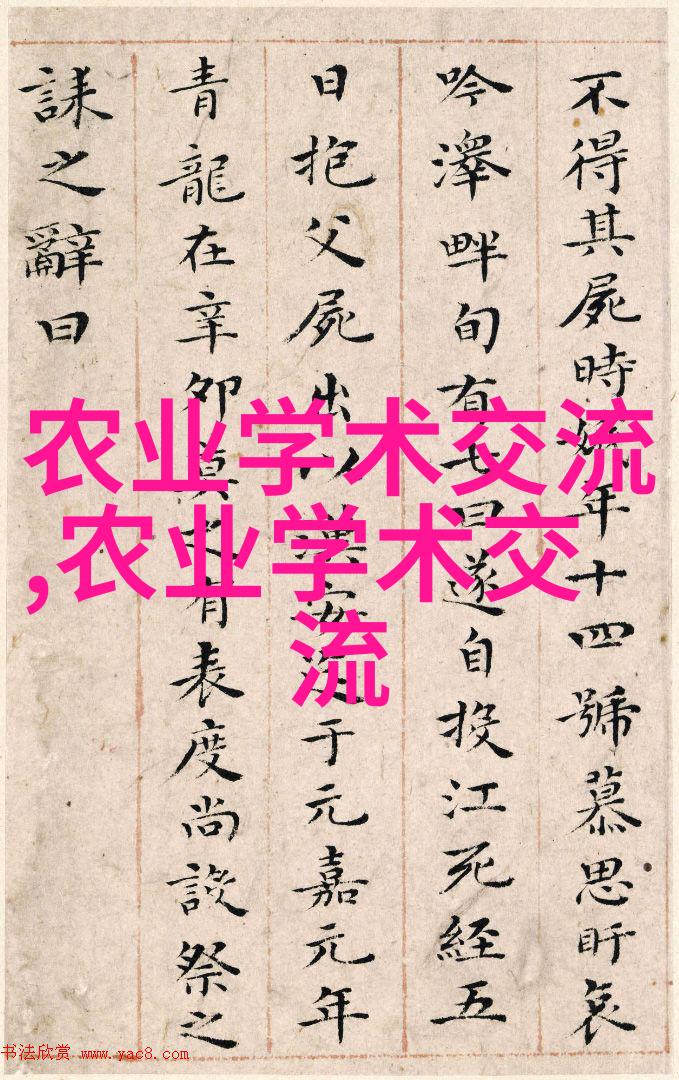 不得其屍時娥年十四號慕思盱哀
吟澤畔旬有七日遂自投江死經五
日抱父屍出以漢安迄于元嘉元年
青龍在辛卯莫之有表度尚設祭之
誄之辭曰
农业学术交流
,农业学术交
流
书法欣赏 www.yac8.com